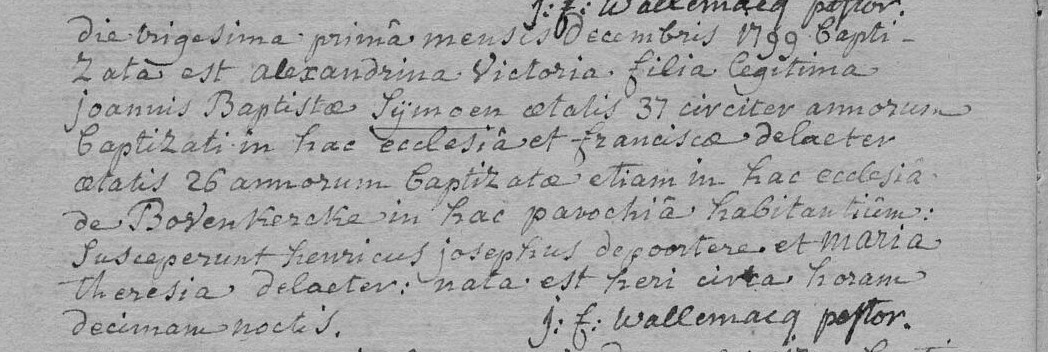 j: f: Wallemacq pastor.
die vigesima primâ mensis Decembris 1799 bapti-
zata est alexandrina Victoria filia legitima
joannis Baptistæ Sijmoen ætatis 37 circiter annorum
baptizati in hac ecclesiâ et franciscæ delaeter
ætatis 26 annorum baptizatæ etiam in hac ecclesiâ
de Bovenkercke in hac parochiâ habitantiûm:
Susceperunt henricus josephus depoortere et maria
theresia delaeter: nata est heri circa horam
decimam noctis. j: f: Wallemacq pastor.